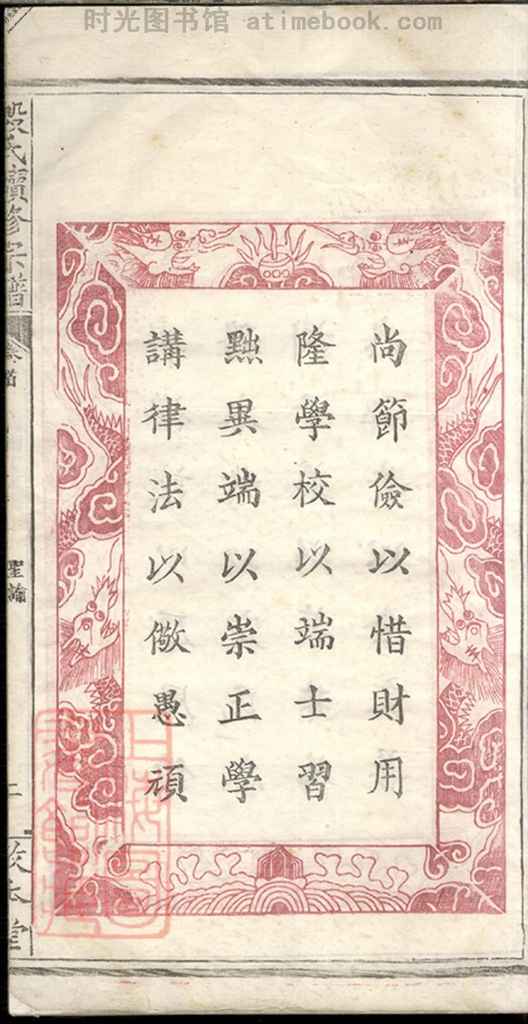 时光图书馆 atimebook.com
尚節儉以惜財用
隆學校以端士習
黜異端以崇正學
講律法以儆愚頑
氏續修宗譜
卷首
聖諭
二